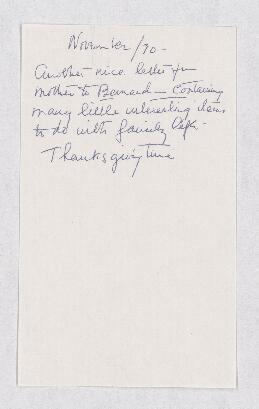 November/70-
Another nice letter fr
mother to Bernard - Containing
many little interesting items
to do with family
Thanksgiving time